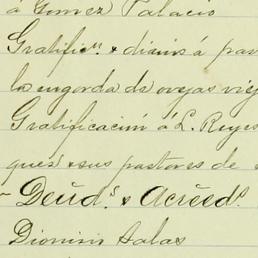 á Gomez Palacio
Gratific.ⁿ & diarios á pas
la engorda de ovejas viej
Gratificación á L. Reyes
ques & sus pastores de
– Deüd.ˢ & Acreed.ˢ
Dionisio Salas